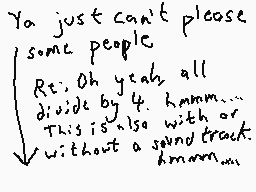 Ya just can't please
some people
Re: Oh yeah, all
divide by 4. hmmm....
This is also with or
without a sound track.
hmmm....